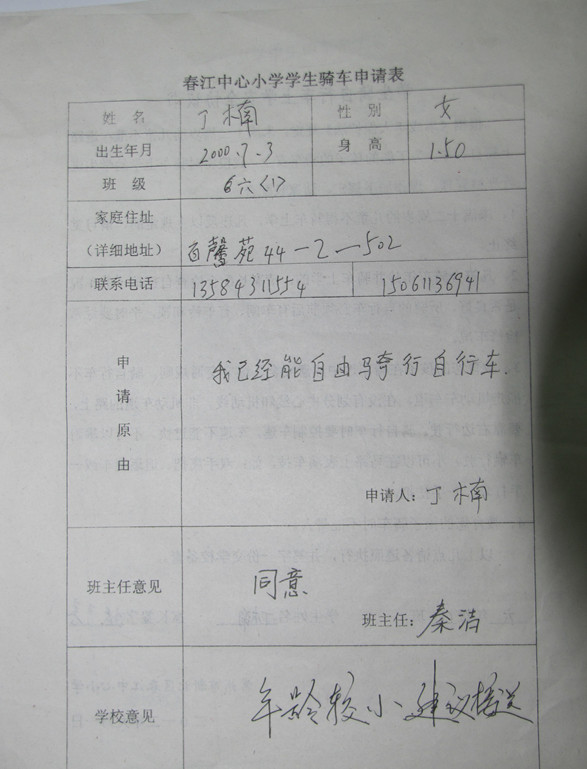 春江中心小学学生骑车申请表
姓名 丁楠 性别 女
出生年月 2000.7.3 身高 1.50
班级 6六<1>
家庭住址
(详细地址) 百馨苑44-2-502
联系电话 13584311554 15061136941
申请原由
我已经能自由骑行自行车.
申请人: 丁楠
班主任意见 同意
班主任: 秦洁
学校意见 年龄较小 建议接送